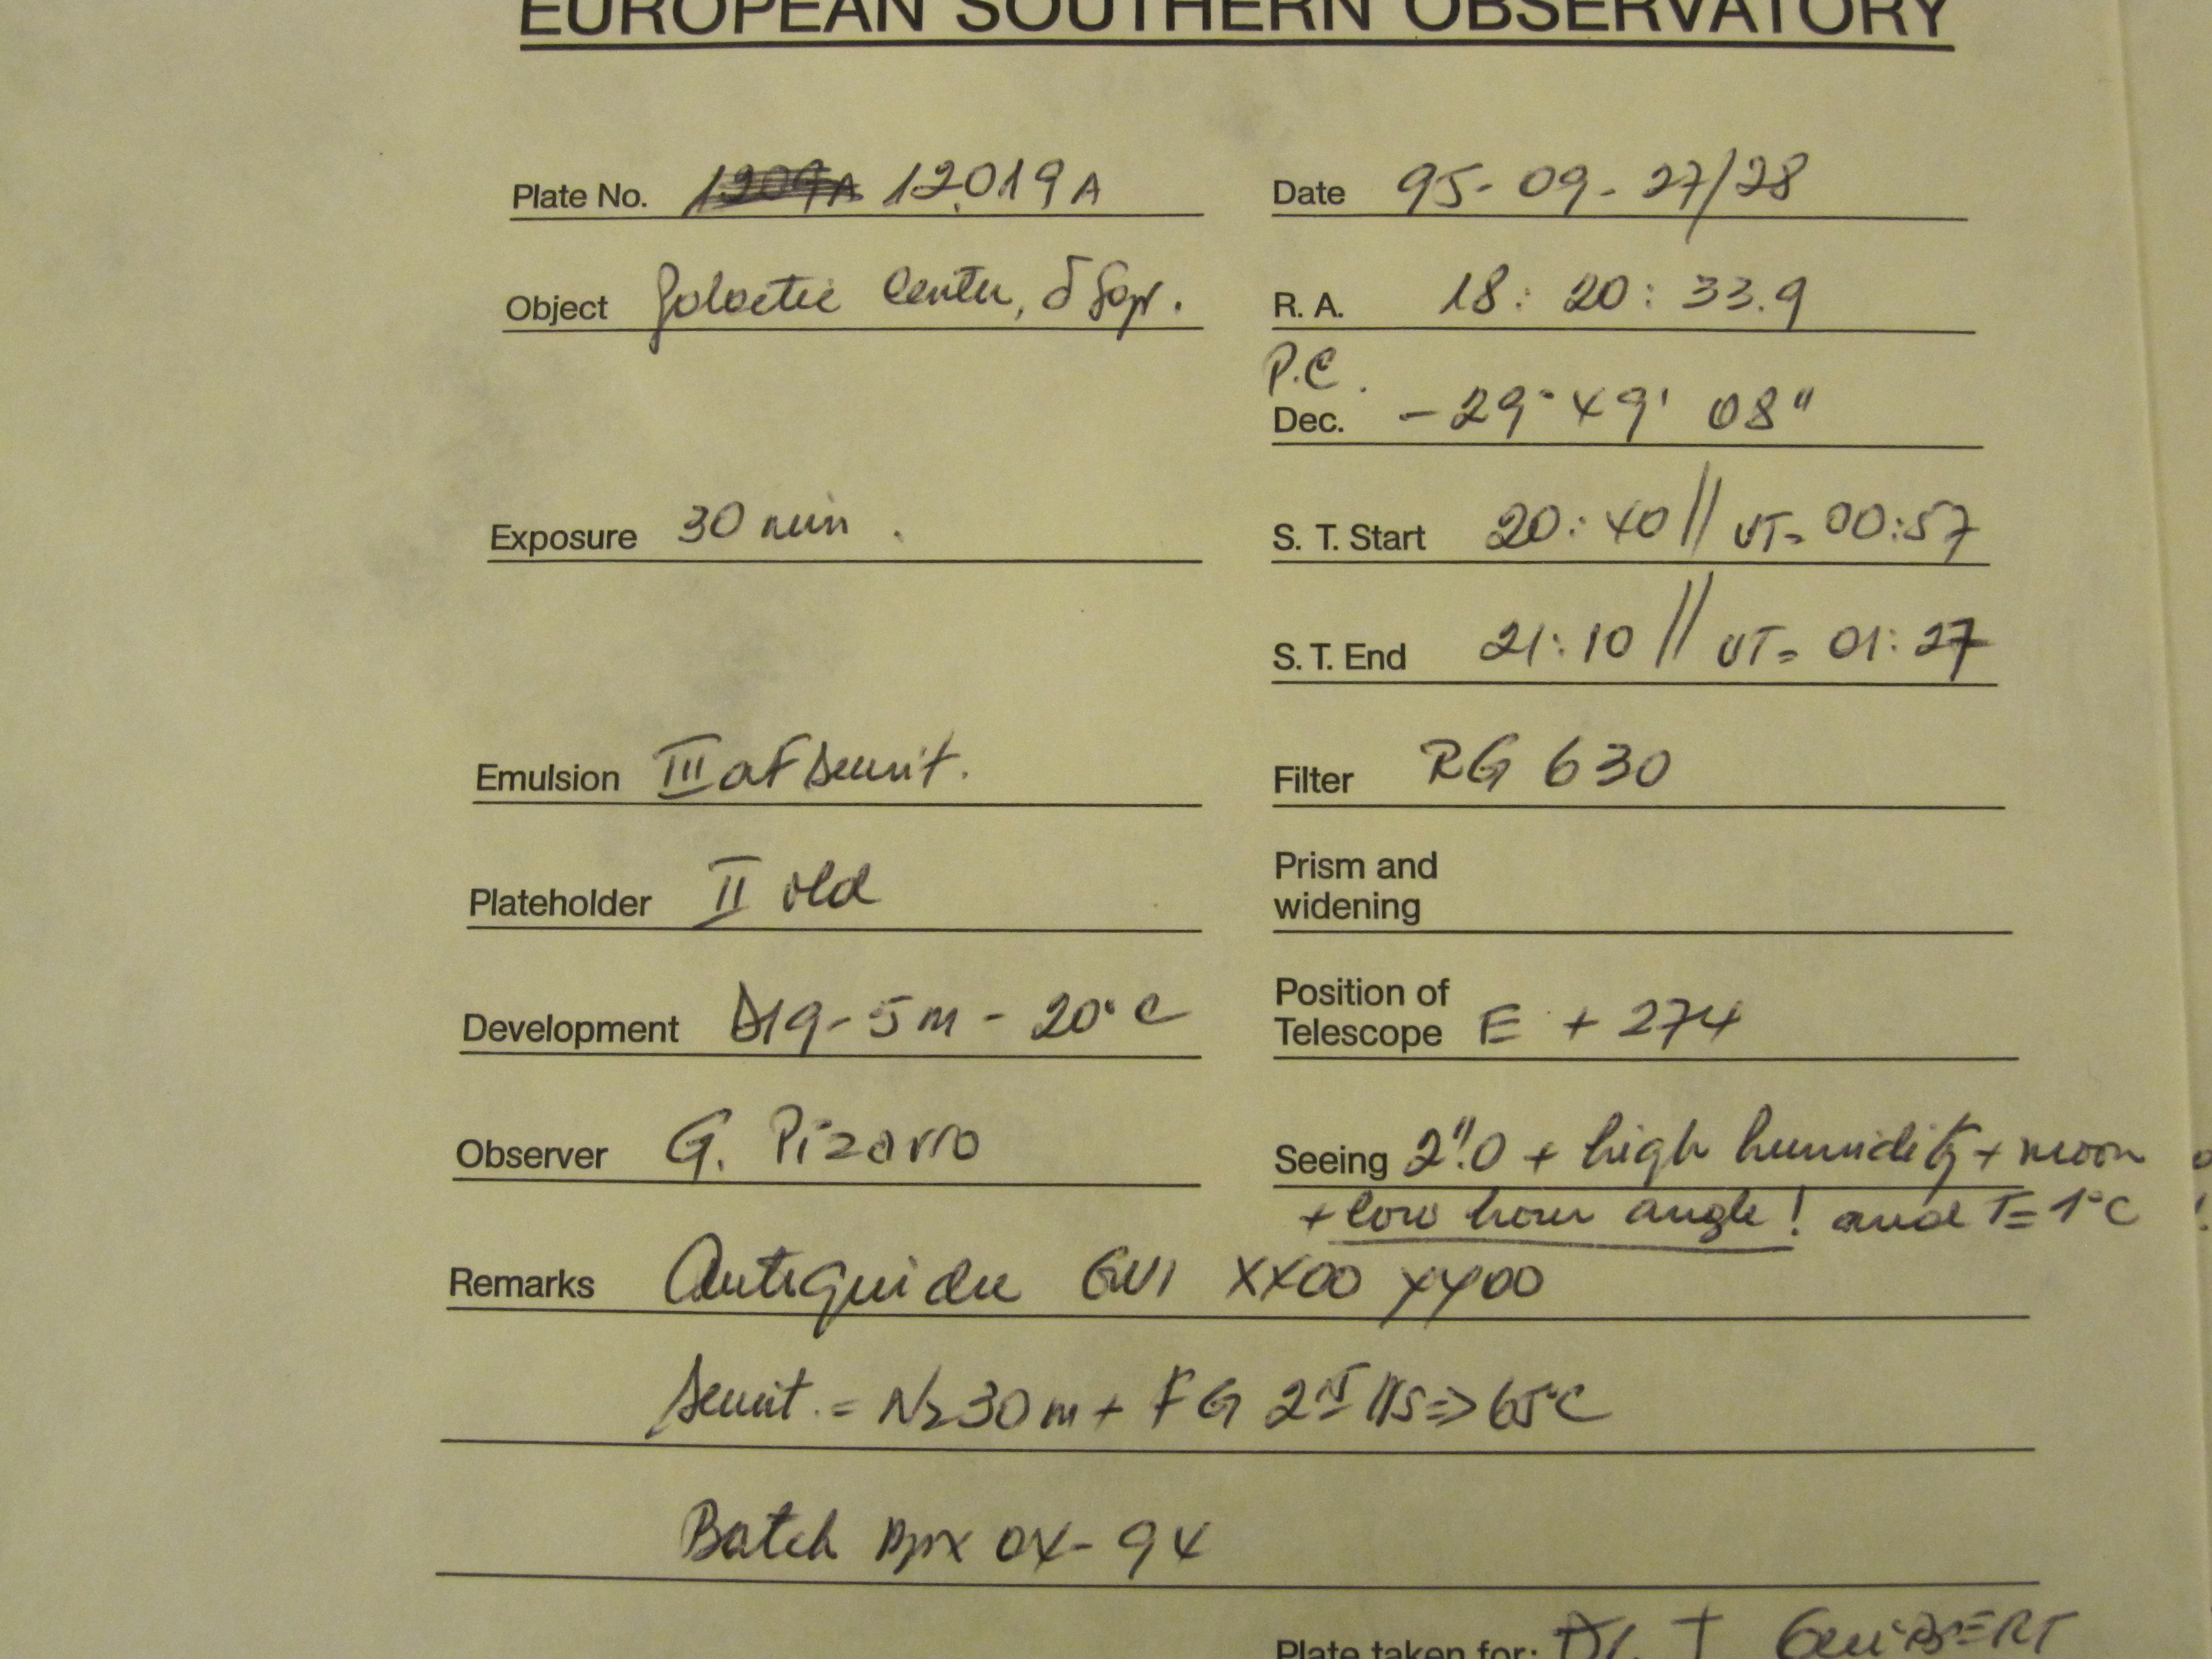 EUROPEAN SOUTHERN OBSERVATORY
Plate No. 12019A
Date 95-09-27/28
Object Galactic Center, δ Sgr.
R. A. 18: 20: 33.9
P.C.
Dec. -29° 49' 08"
Exposure 30 min.
S. T. Start 20:40 // UT= 00:57
S. T. End 21:10 // UT= 01:27
Emulsion IIIaF sensit.
Filter RG 630
Plateholder II old
Prism and
widening
Development D19-5m-20°C
Position of
Telescope E +274
Observer G. Pizarro
Seeing 2".0 + high humidity + moon
+ low hour angle! and T=1°C
Remarks Autoguider GW1 XX00 YY00
Sensit. = N2 30m + FG => 65°C
Batch 04-94
Plate taken for: Dr. J GUIBERT